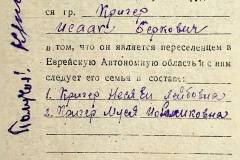 ся гр. Кригер
Исаак Беркович
в том, что он является переселенцем в
Еврейскую Автономную область и с ним
следует его семья в составе:
1. Кригер Неся Ейлейбовна
2. Кригер Муся Исааковна
Получил: